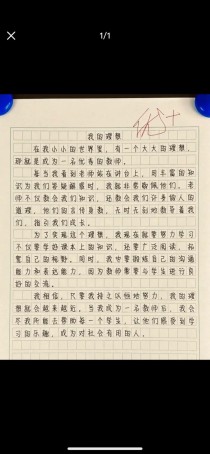 1/1
优+
我的理想
在我小小的世界里，有一个大大的理想，
那就是成为一名优秀的教师。
每当我看到老师站在讲台上，用丰富的知
识为我们答疑解惑时，我就非常敬佩他们。老
师不仅教会我们知识，还教会我们许多做人的
道理。他们的言传身教，无时无刻地影响着我
们，指引我们成长。
为了实现这个理想，我现在就要努力学习
不仅要学好课本上的知识，还要广泛阅读，拓
宽自己的视野。同时，我也要锻炼自己的沟通
能力和表达能力，因为教师需要与学生进行良
好的交流。
我相信，只要我持之以恒地努力，我的理
想就会越来越近。当我成为一名教师后，我会
尽我所能去帮助每一个学生，让他们感受到学
习的乐趣，成为对社会有用的人。